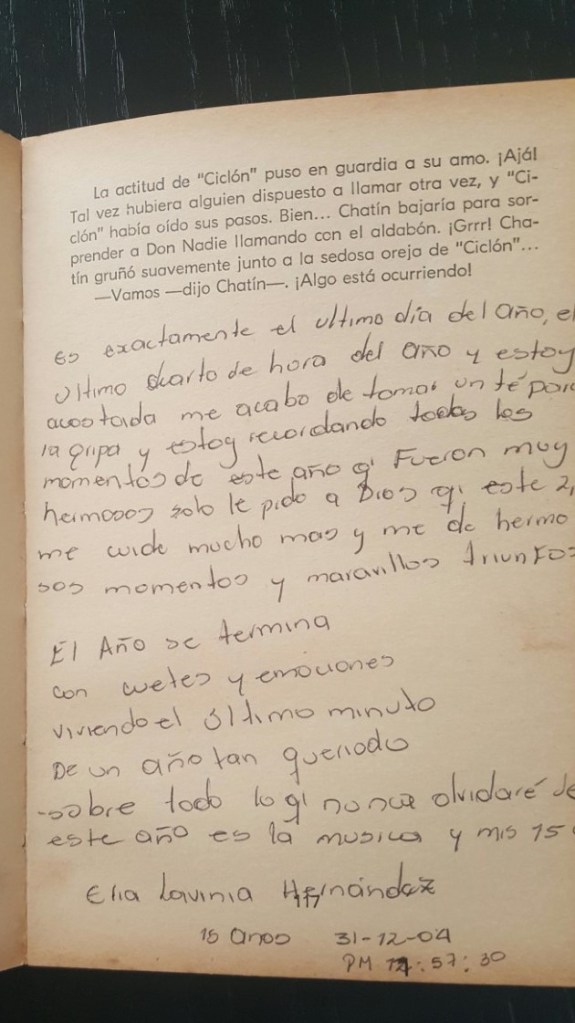 La actitud de "Ciclón" puso en guardia a su amo. ¡Ajá!
Tal vez hubiera alguien dispuesto a llamar otra vez, y "Ci-
clón" había oído sus pasos. Bien... Chatín bajaría para sor-
prender a Don Nadie llamando con el aldabón. ¡Grrr! Cha-
tín gruñó suavemente junto a la sedosa oreja de "Ciclón"...
—Vamos —dijo Chatín—. ¡Algo está ocurriendo!
es exactamente el ultimo día del año, el
último cuarto de hora del año y estoy
acostada me acabo de tomar un té para
la gripa y estoy recordando todos los
momentos de este año qi Fueron muy
hermosos solo le pido a Dios qi este 2,
me cuide mucho mas y me de hermo
sos momentos y maravillos triunfos
El Año se termina
con cuetes y emociones
viviendo el último minuto
De un año tan querido
-sobre todo lo qi nunca olvidaré de
este año es la musica y mis 15
Elia Lavinia Hernández
15 años 31-12-04
PM :57:30